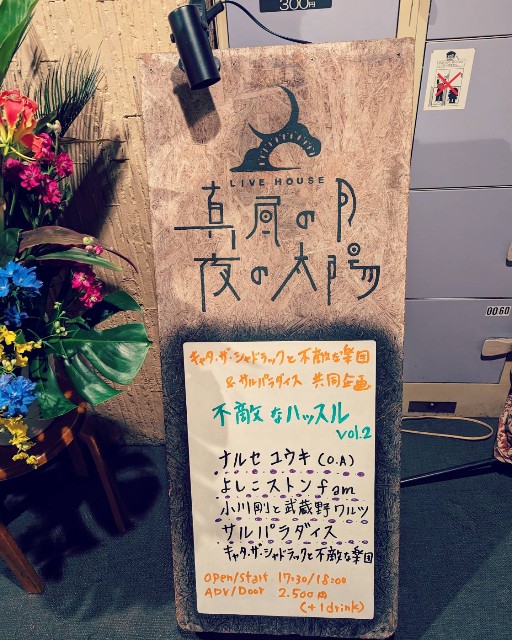 300円
LIVE HOUSE
真昼の月
夜の太陽
キャタ・ザ・シャドラックと不敵な楽団
& サルパラダイス 共同企画
不敵なハッスル
vol.2
ナルセ ユウキ (O.A)
よしこストンfam
小川剛と武蔵野ワルツ
サルパラダイス
キャタ・ザ・シャドラックと不敵な楽団
open/start 17:30/18:00
ADV/Door 2.500円
(+1drink)
0060